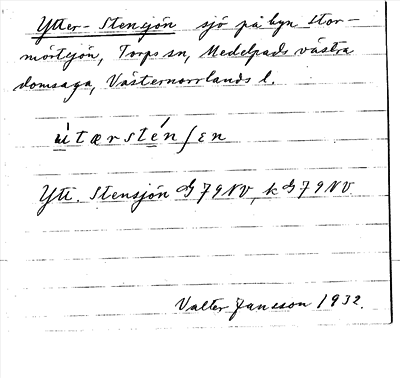 Ytter-Stensjön sjö på byn Stor-
mörtsjön, Torps sn, Medelpads västra
domsaga, Västernorrlands l.
ùtærsténʃen
Ytt. Stensjön G 79 NV, k G 79 NV
Valter Jansson 1932.